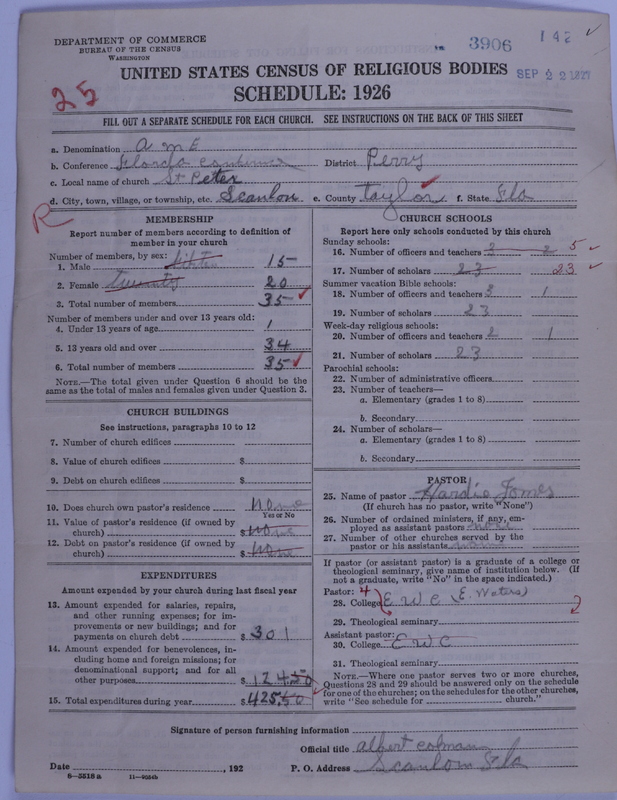 DEPARTMENT OF COMMERCE
BUREAU OF THE CENSUS
WASHINGTON
3906
142
SEP 22 1927
UNITED STATES CENSUS OF RELIGIOUS BODIES
SCHEDULE: 1926
25
FILL OUT A SEPARATE SCHEDULE FOR EACH CHURCH. SEE INSTRUCTIONS ON THE BACK OF THIS SHEET
a. Denomination A M E
b. Conference Florida Conference District Perry
c. Local name of church St Peter
d. City, town, village, or township, etc. Scanlon e. County Taylor f. State Fla
R
MEMBERSHIP
Report number of members according to definition of
member in your church
Number of members, by sex:
1. Male 15
2. Female 20
3. Total number of members 35
Number of members under and over 13 years old:
4. Under 13 years of age 1
5. 13 years old and over 34
6. Total number of members 35
NOTE.—The total given under Question 6 should be
same as the total of males and females given under Question 3.
CHURCH BUILDINGS
See instructions, paragraphs 10 to 12
7. Number of church edifices
8. Value of church edifices $
9. Debt on church edifices $
10. Does church own pastor's residence none
Yes or No
11. Value of pastor's residence (if owned by
church) $ none
12. Debt on pastor's residence (if owned by
church) $ none
EXPENDITURES
Amount expended by your church during last fiscal year
13. Amount expended for salaries, repairs,
and other running expenses; for im-
provements or new buildings; and for
payments on church debt $ 301
14. Amount expended for benevolences, in-
cluding home and foreign missions; for
denominational support; and for all
other purposes $ 124 50
15. Total expenditures during year $ 425.50
CHURCH SCHOOLS
Report here only schools conducted by this church
Sunday schools:
16. Number of officers and teachers 3 2 5
17. Number of scholars 23 23
Summer vacation Bible schools:
18. Number of officers and teachers 3 1
19. Number of scholars 23
Week-day religious schools:
20. Number of officers and teachers 2 1
21. Number of scholars 23
Parochial schools:
22. Number of administrative officers
23. Number of teachers—
a. Elementary (grades 1 to 8)
b. Secondary
24. Number of scholars—
a. Elementary (grades 1 to 8)
b. Secondary
PASTOR
25. Name of pastor Hardie Jones
(If church has no pastor, write "None")
26. Number of ordained ministers, if any, em-
ployed as assistant pastors none
27. Number of other churches served by the
pastor or his assistants
If pastor (or assistant pastor) is a graduate of a college or
theological seminary, give name of institution below. (If
not a graduate, write "No" in the space indicated.)
Pastor: 4
28. College E W C (E. Waters)
29. Theological seminary
Assistant pastor:
30. College E W C
31. Theological seminary
NOTE.—Where one pastor serves two or more churches,
Questions 28 and 29 should be answered only on the schedule
for one of the churches; on the schedules for the other churches,
write "See schedule for church."
Signature of person furnishing information
Official title Albert Colman
Date , 192 P. O. Address Scanlon Fla
6—5518 a 11—9024b